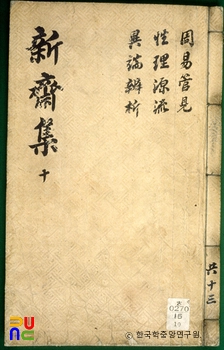 周易管見
性理源流
異端辨析
新齋集 十
共十三
0270
18
10
ⓒ한국학중앙연구원